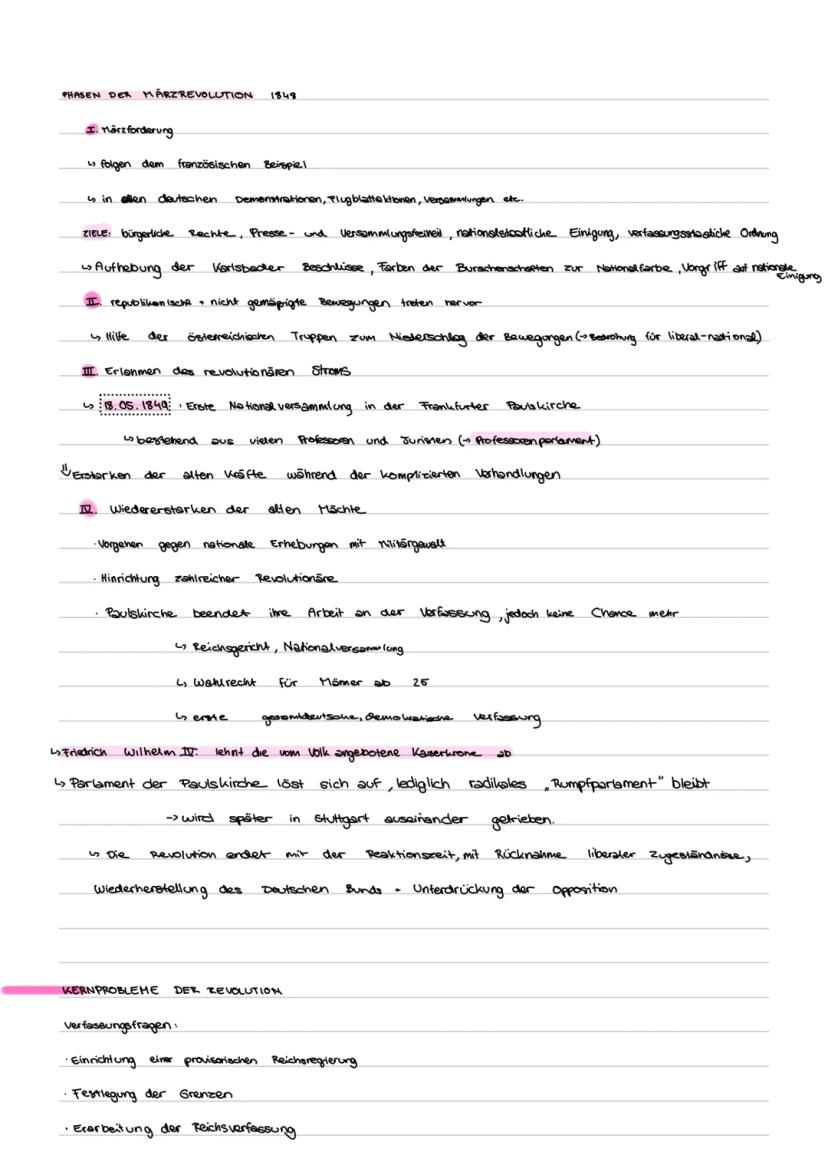 PHASEN DER MÄRZREVOLUTION 1848
I. Märzforderung
↳ folgen dem französischen Beispiel
↳ in allen deutschen Demonstrationen, Flugblattaktionen, Versammlungen etc.
ZIELE: bürgerliche Rechte, Presse- und Versammlungsfreiheit, nationalstaatliche Einigung, verfassungsstaatliche Ordnung
↳ Aufhebung der Karlsbader Beschlüsse, Farben der Burschenschaften zur Nationalfarbe, Vorgriff auf nationale Einigung
II. republikanische + nicht gemäßigte Bewegungen treten hervor
↳ Hilfe der österreichischen Truppen zum Niederschlag der Bewegungen (→ Bedrohung für liberal-national)
III. Erlahmen des revolutionären Stroms
↳ 18.05.1849: Erste Nationalversammlung in der Frankfurter Paulskirche
↳ bestehend aus vielen Professoren und Juristen (→ Professorenparlament)
⇓ Erstarken der alten Kräfte während der komplizierten Verhandlungen
IV. Wiedererstarken der alten Mächte
· Vorgehen gegen nationale Erhebungen mit Militärgewalt
· Hinrichtung zahlreicher Revolutionäre
· Paulskirche beendet ihre Arbeit an der Verfassung, jedoch keine Chance mehr
↳ Reichsgericht, Nationalversammlung
↳ Wahlrecht für Männer ab 25
↳ erste gesamtdeutsche, demokratische Verfassung
↳ Friedrich Wilhelm IV. lehnt die vom Volk angebotene Kaiserkrone ab
↳ Parlament der Paulskirche löst sich auf, lediglich radikales „Rumpfparlament" bleibt
→ wird später in Stuttgart auseinander getrieben.
↳ Die Revolution endet mit der Reaktionszeit, mit Rücknahme liberaler Zugeständnisse,
Wiederherstellung des Deutschen Bunds + Unterdrückung der Opposition
KERNPROBLEME DER REVOLUTION
Verfassungsfragen:
· Einrichtung einer provisorischen Reichsregierung
· Festlegung der Grenzen
· Erarbeitung der Reichsverfassung